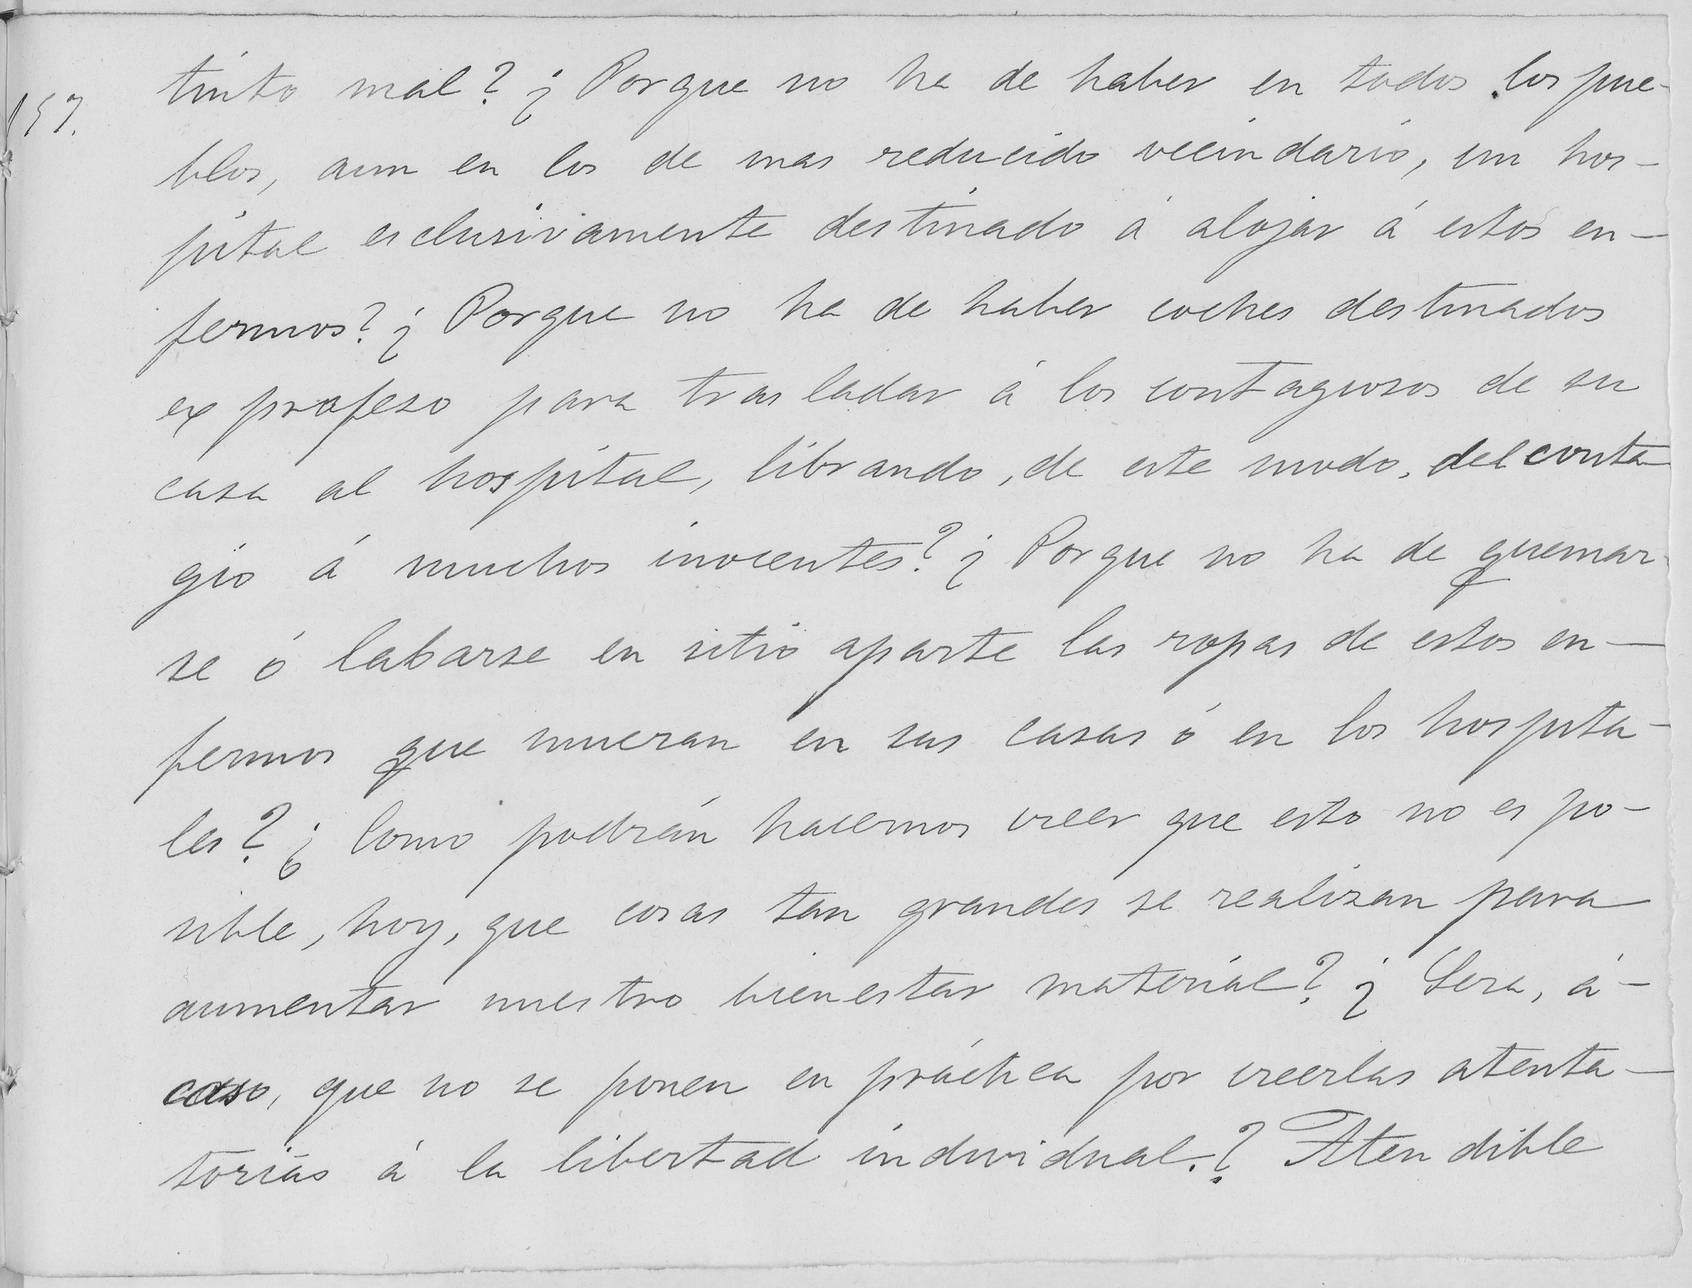 157.
tinto mal? ¿Porque no ha de haber en todos los pue-
blos, aun en los de mas reducido vecindario, un hos-
pital esclusivamente destinado á alojar á estos en-
fermos? ¿Porque no ha de haber coches destinados
ex profeso para trasladar á los contagiosos de su
casa al hospital, librando, de este modo, del conta-
gio á muchos inocentes? ¿Porque no ha de quemar-
se ó labarse en sitio aparte las ropas de estos en-
fermos que mueran en sus casas ó en los hospita-
les? ¿Como podrán hacernos creer que esto no es po-
sible, hoy, que cosas tan grandes se realizan para
aumentar nuestro bienestar material? ¿Sera, á-
caso, que no se ponen en práctica por creerlas atenta-
torias á la libertad individual.? Atendible